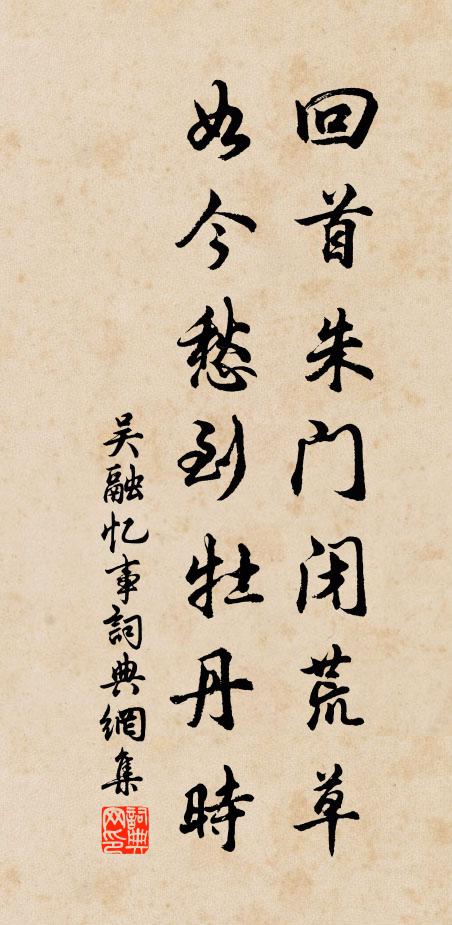 回首朱门闭荒草
如今愁到牡丹時
吴融忆事詞典網集
詞典网印